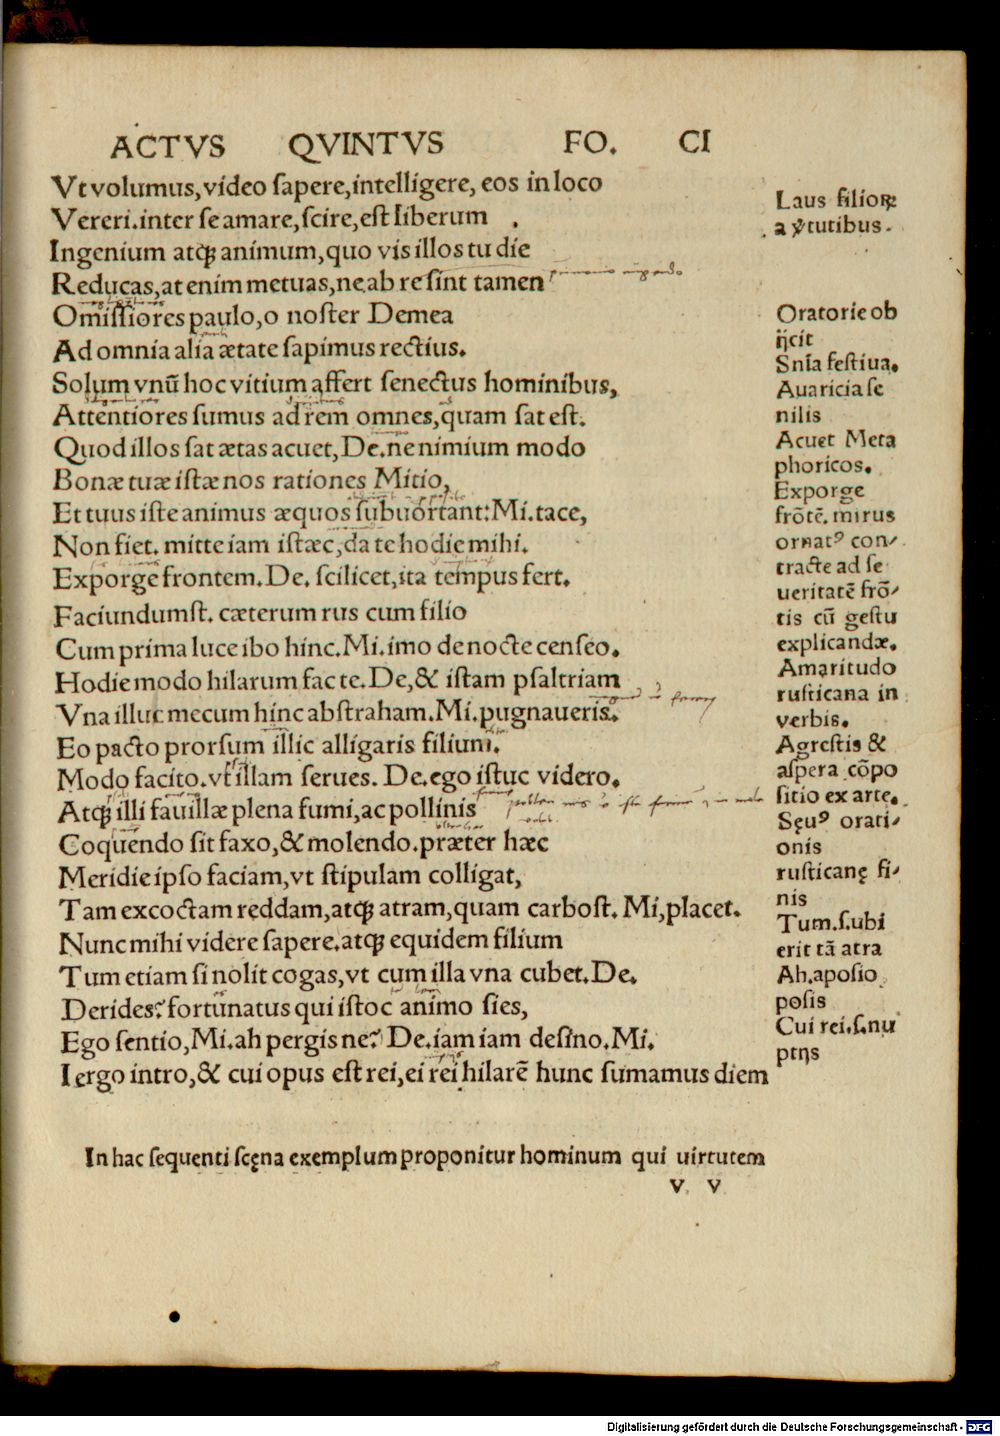 ACTVS QVINTVS FO. CI
Vt volumus, video sapere, intelligere, eos in loco
Vereri. inter se amare, scire, est liberum
Ingenium atqꝫ animum, quo vis illos tu die
Reducas, at enim metuas, ne ab re sint tamen
Omissiores paulo, o noster Demea
Ad omnia alia ætate sapimus rectius.
Solum vnũ hoc vitium affert senectus hominibus,
Attentiores sumus ad rem omnes, quam sat est.
Quod illos sat ætas acuet, De. ne nimium modo
Bonæ tuæ istæ nos rationes Mitio,
Et tuus iste animus æquos subuortant: Mi. tace,
Non fiet. mitte iam istæc, da te hodie mihi.
Exporge frontem. De. scilicet, ita tempus fert.
Faciundumst. cæterum rus cum filio
Cum prima luce ibo hinc. Mi. imo de nocte censeo.
Hodie modo hilarum fac te. De, & istam psaltriam
Vna illuc mecum hinc abstraham. Mi. pugnaueris.
Eo pacto prorsum illic alligaris filium.
Modo facito. vt illam serues. De. ego istuc videro.
Atqꝫ illi fauillæ plena fumi, ac pollinis
Coquendo sit faxo, & molendo. præter hæc
Meridie ipso faciam, vt stipulam colligat,
Tam excoctam reddam, atqꝫ atram, quam carbost. Mi, placet.
Nunc mihi videre sapere. atqꝫ equidem filium
Tum etiam si nolit cogas, vt cum illa vna cubet. De.
Derides? fortunatus qui istoc animo sies,
Ego sentio, Mi. ah pergis ne? De. iam iam desino. Mi.
I ergo intro, & cui opus est rei, ei rei hilarẽ hunc sumamus diem
In hac sequenti scęna exemplum proponitur hominum qui uirtutem
v v
Laus filioꝝ
a ꝟtutibus.
Oratorie ob
ijcit
Snĩa festiua.
Auaricia se
nilis
Acuet Meta
phoricos.
Exporge
frõtẽ. mirus
ornatꝰ con/
tracte ad se
ueritatẽ frõ/
tis cũ gestu
explicandæ.
Amaritudo
rusticana in
verbis.
Agrestis &
aspera cõpo
sitio ex arte.
Sęuꝰ orati/
onis
rusticanę fi/
nis
Tum. s. ubi
erit tã atra
Ah. aposio
posis
Cui rei. s. nu
ptijs
Digitalisierung gefördert durch die Deutsche Forschungsgemeinschaft - DFG